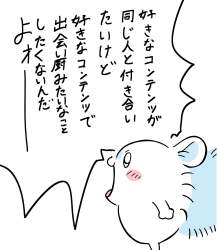 好きなコンテンツが
同じ人と付き合い
たいけど
好きなコンテンツで
出会い厨みたいなこと
したくないんだ
よオ──